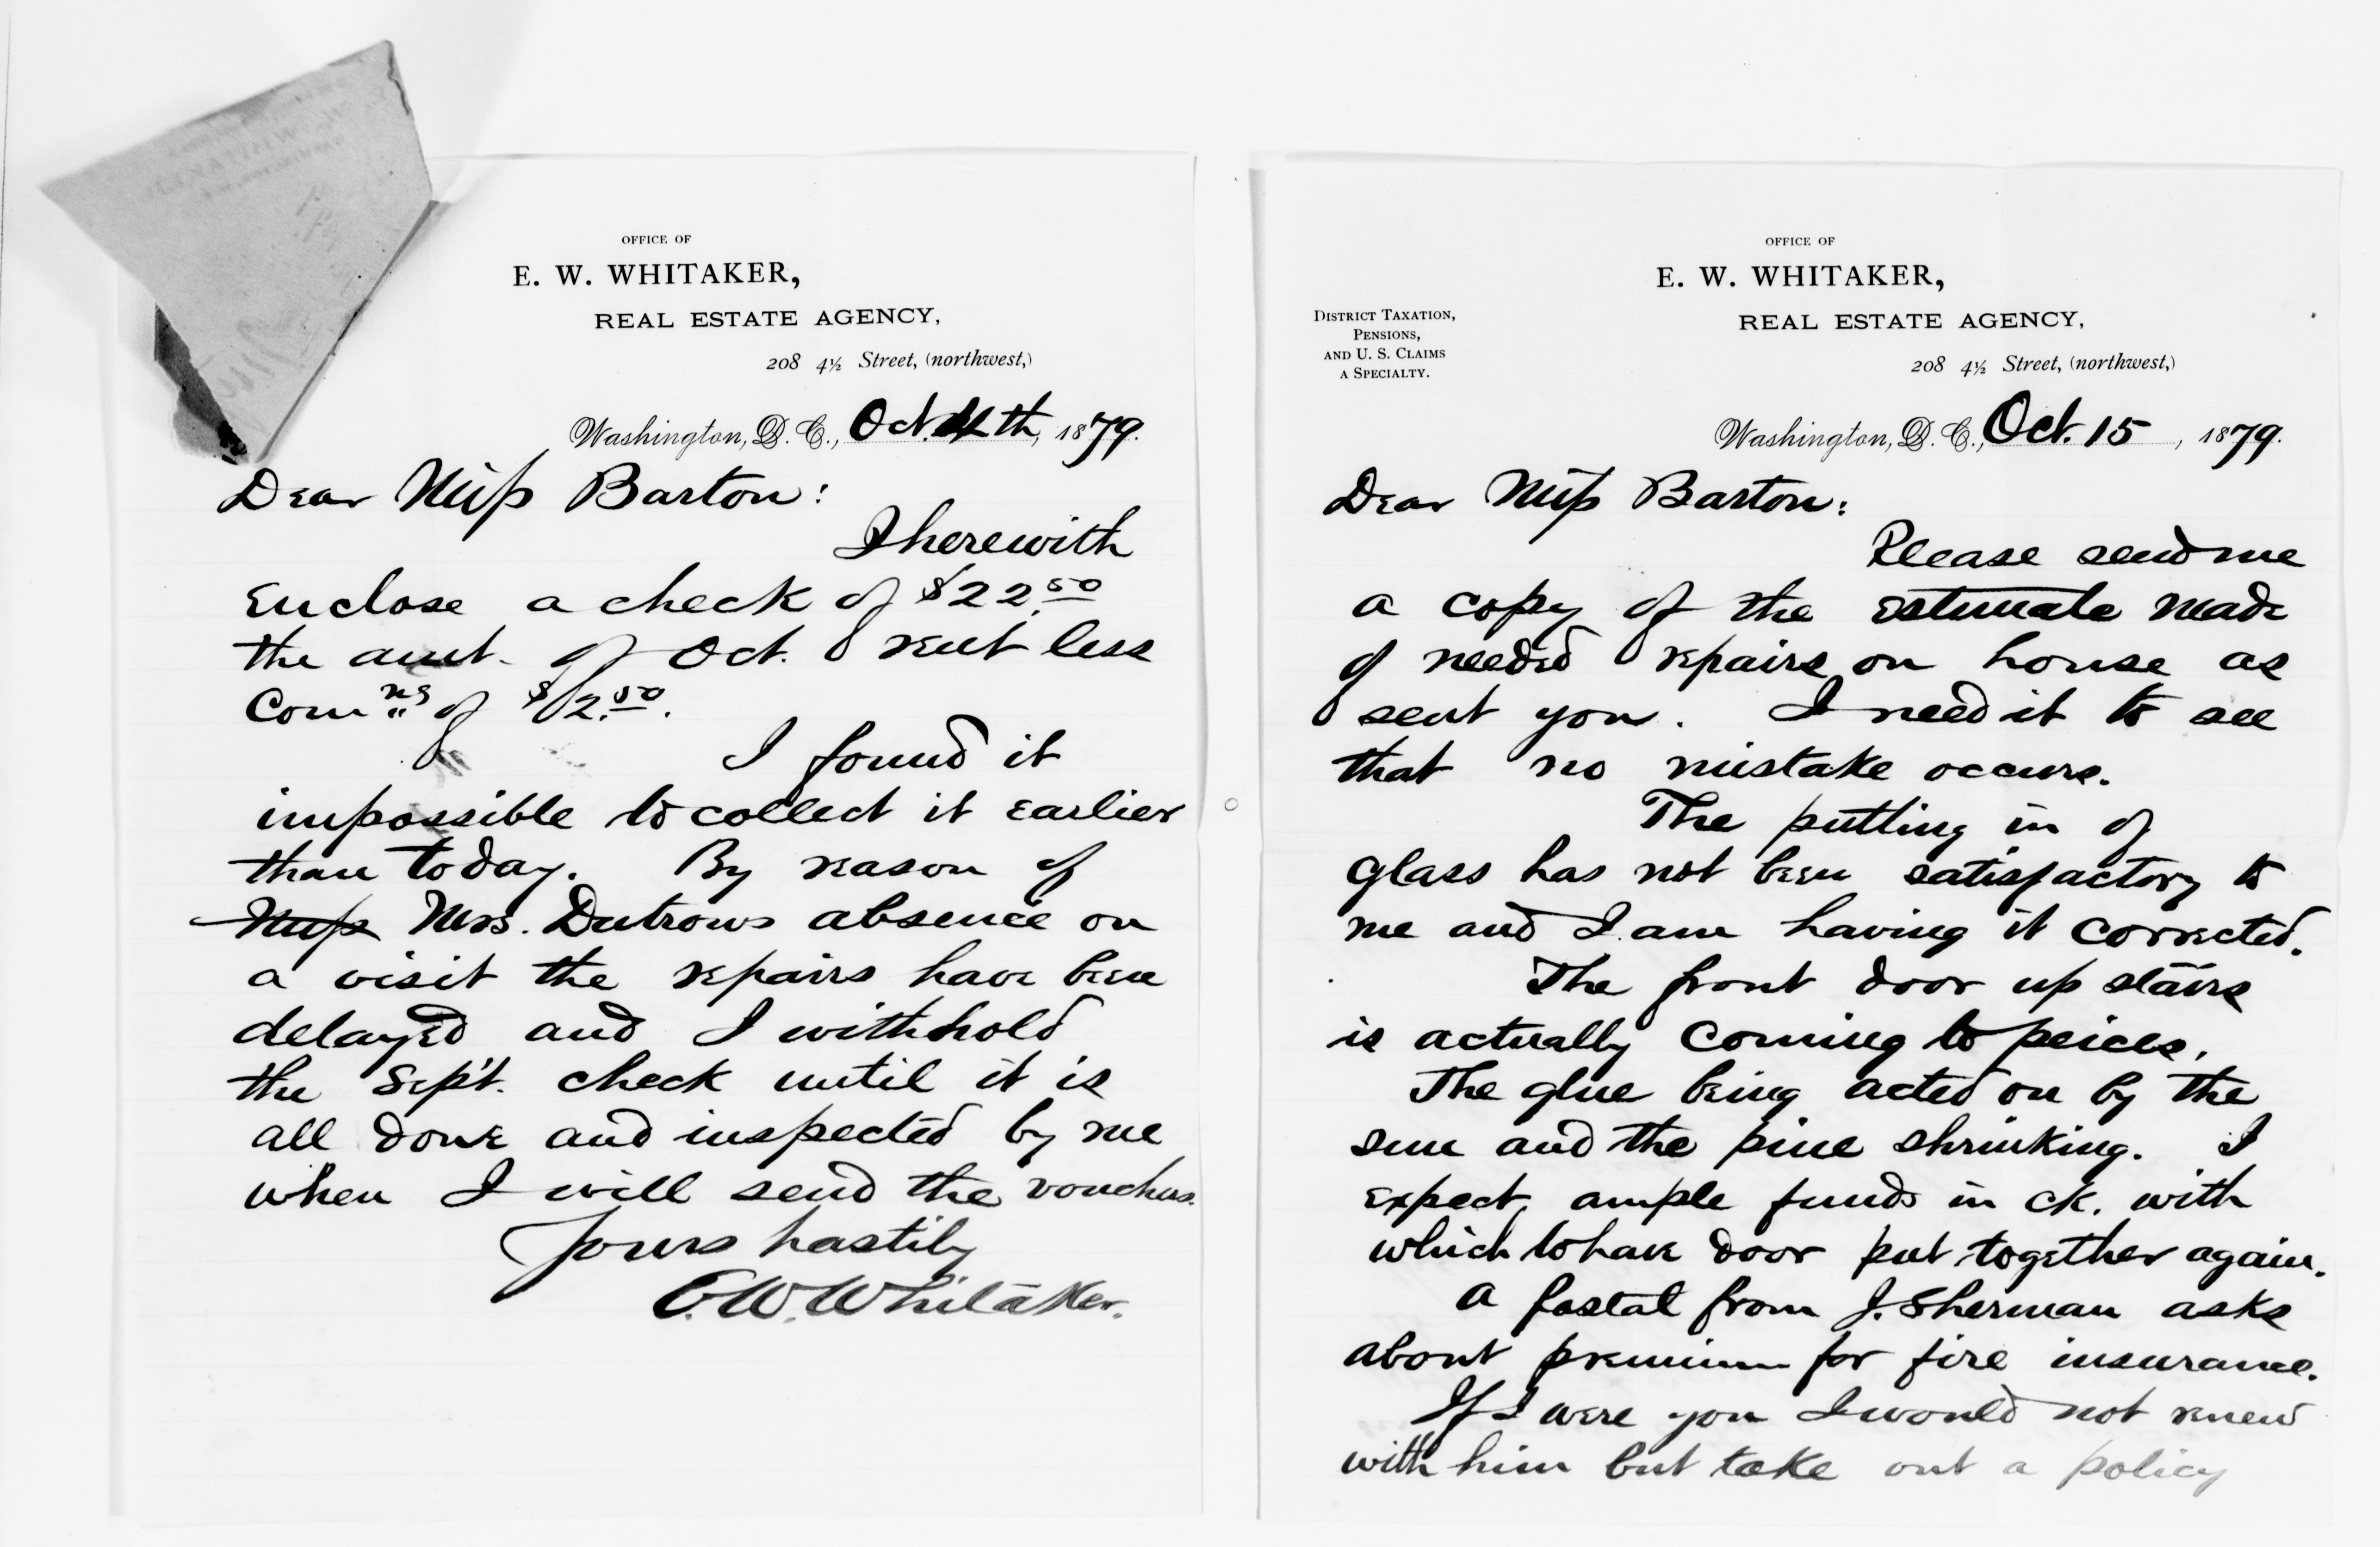 OFFICE OF
E. W. WHITAKER,
REAL ESTATE AGENCY,
208 4½ Street, (northwest,)
Washington, D. C., Oct. 4th, 1879.
Dear Miss Barton:
I herewith
Enclose a check of $22.50
the amt. of Oct. rent less
Comns of $2.50.
I found it
impossible to collect it earlier
than today. By reason of
Miss Mrs. Dutrows absence on
a visit the repairs have been
delayed and I withhold
the Sept. check until it is
all done and inspected by me
when I will send the vouchers.
Yours hastily
E. W. Whitaker.
OFFICE OF
E. W. WHITAKER,
REAL ESTATE AGENCY,
DISTRICT TAXATION,
PENSIONS,
AND U. S. CLAIMS
A SPECIALTY.
208 4½ Street, (northwest,)
Washington, D. C., Oct. 15, 1879.
Dear Miss Barton:
Please send me
a copy of the estimate made
of needed repairs on house as
sent you. I need it to see
that no mistake occurs.
The putting in of
glass has not been satisfactory to
me and I am having it corrected.
The front door up stairs
is actually coming to peices.
The glue being acted on by the
sun and the pine shrinking. I
expect ample funds in ck. with
which to have door put together again.
A postal from J. Sherman asks
about premium for fire insurance.
If I were you I would not renew
with him but take out a policy